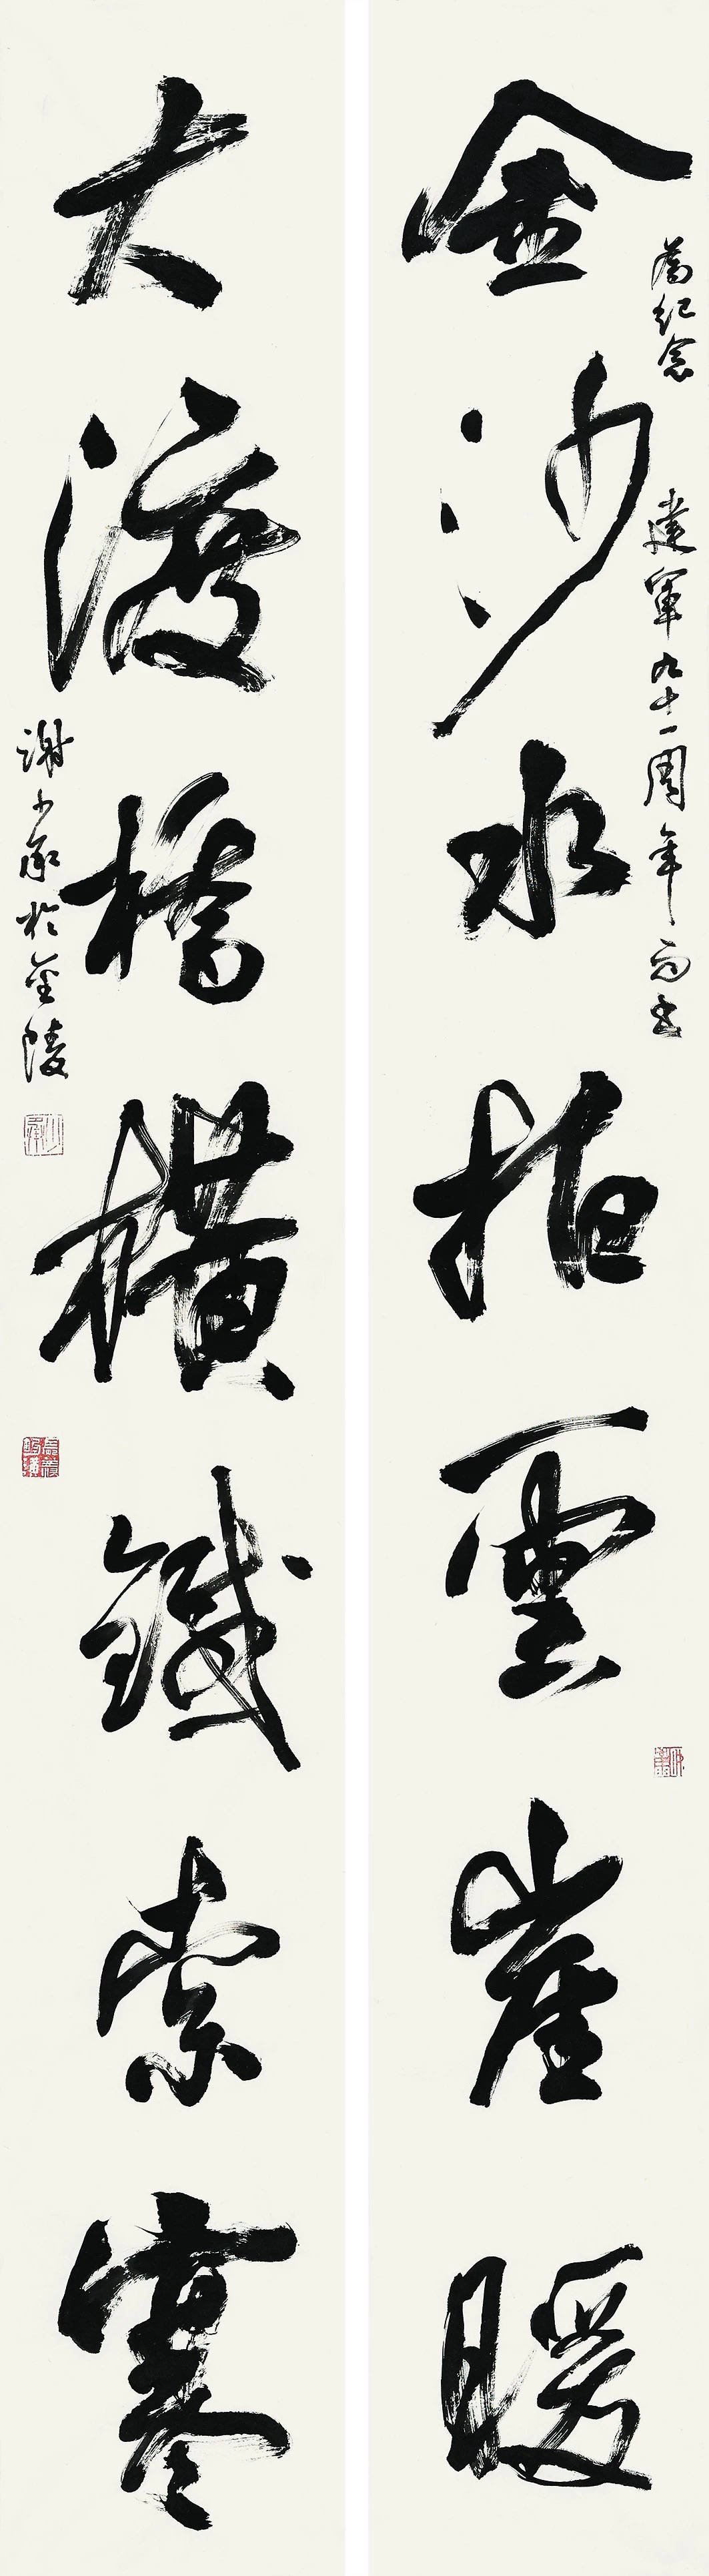 金沙水拍雲崖暖
為紀念
建軍九十一周年而書
大渡橋橫鐵索寒
謝少承於金陵